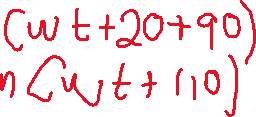 (wt+20+90)
n(wt+110)